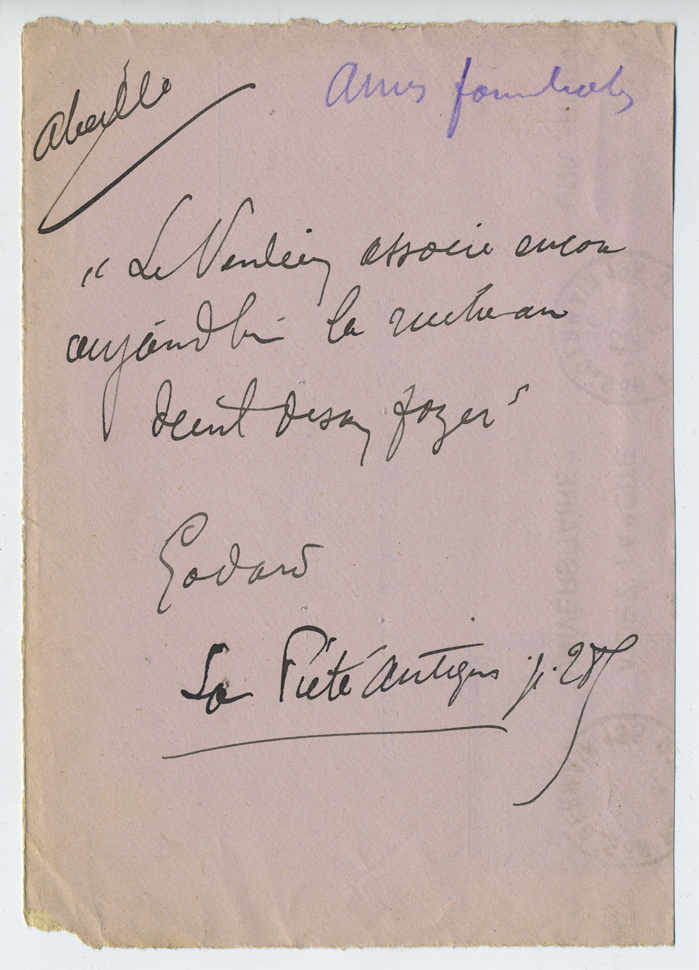 Abeille
Ames
« Le Vendéen associe encore
aujourd'hui la ruche au
deuil de son foyer »
Godard
La Piété Antique p. 285